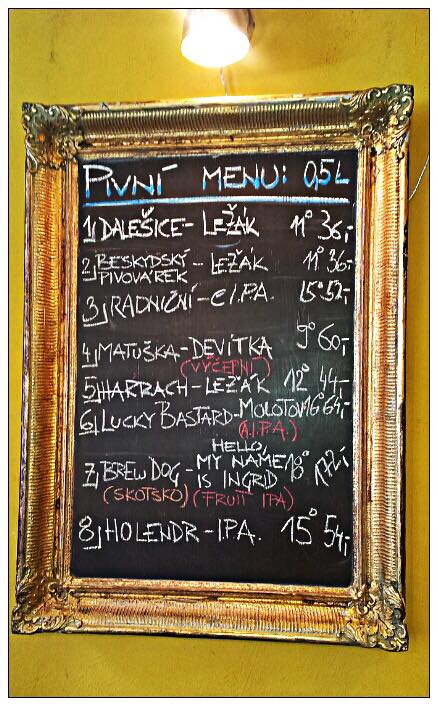 PIVNÍ MENU: 0,5L
1) DALEŠICE - LEŽÁK 11° 36,-
2) BESKYDSKÝ PIVOVÁREK - LEŽÁK 11° 36,-
3) RADNIČNÍ - I.P.A. 15° 52,-
4) MATUŠKA - DEVÍTKA 9° 60,-
(VÝČEPNÍ)
5) HARRACH - LEŽÁK 12° 44,-
6) LUCKY BASTARD - MOLOTOV 16° 64,-
(A.I.P.A.)
HELLO,
7) BREW DOG - MY NAME 18°
IS INGRID
(SKOTSKO) (FRUIT IPA)
8) HOLENDR - I.P.A. 15° 54,-